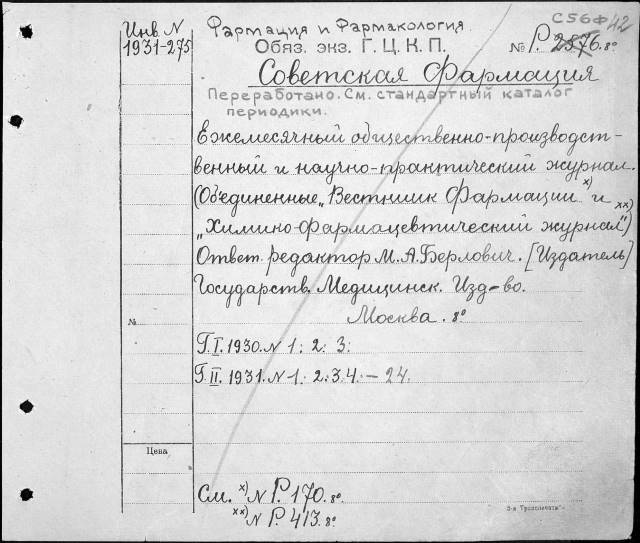 Инв N
1931-275
Фармация и Фармакология
Обяз. экз. Г. Ц. К. П.
С56Ф42
№ Р. 2576. 8º
Советская Фармация
Переработано. См. стандартный каталог
периодики.
Ежемесячный общественно-производст-
венный и научно-практический журнал.
(Объединенные „Вестник Фармации x) и
„Химико-фармацевтический журнал" xx))
Ответ. редактор М. А. Берлович. [Издатель]
Государств. Медицинск. Изд-во.
Москва. 8º
№
Г. I. 1930. N 1: 2: 3:
Г. II. 1931. N 1: 2: 3. 4: – 24.
Цена
См. x) N Р. 170. 8º
xx) N Р. 413. 8º